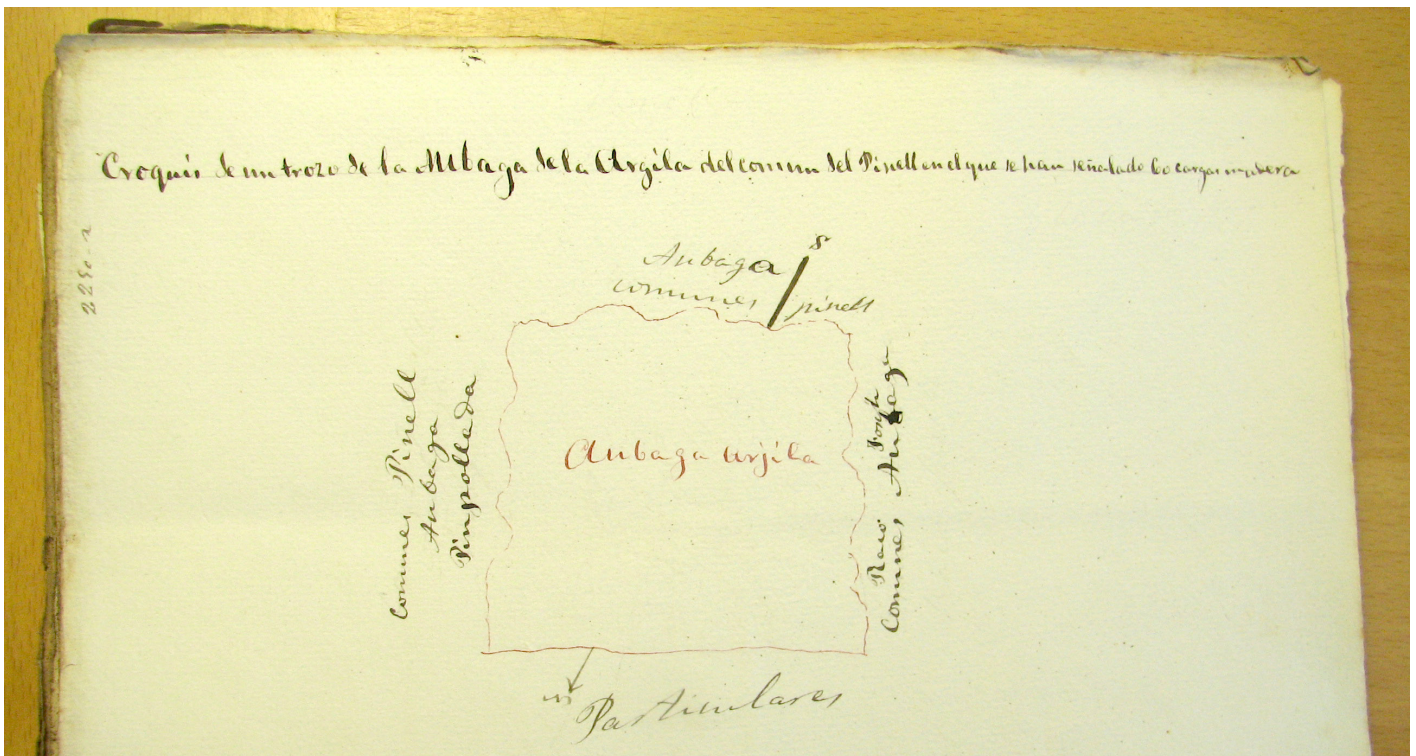 Croquis de un trozo de la Aubaga de la Argila del comun del Pinell en el que se han señalado 60 cargas madera
2250-2
S
Aubaga
comunes pinell
Comunes Pinell
Aubaga
Pinpollada
Aubaga Arjila
Raco Fonda
Comunes Aubaga
Particulares